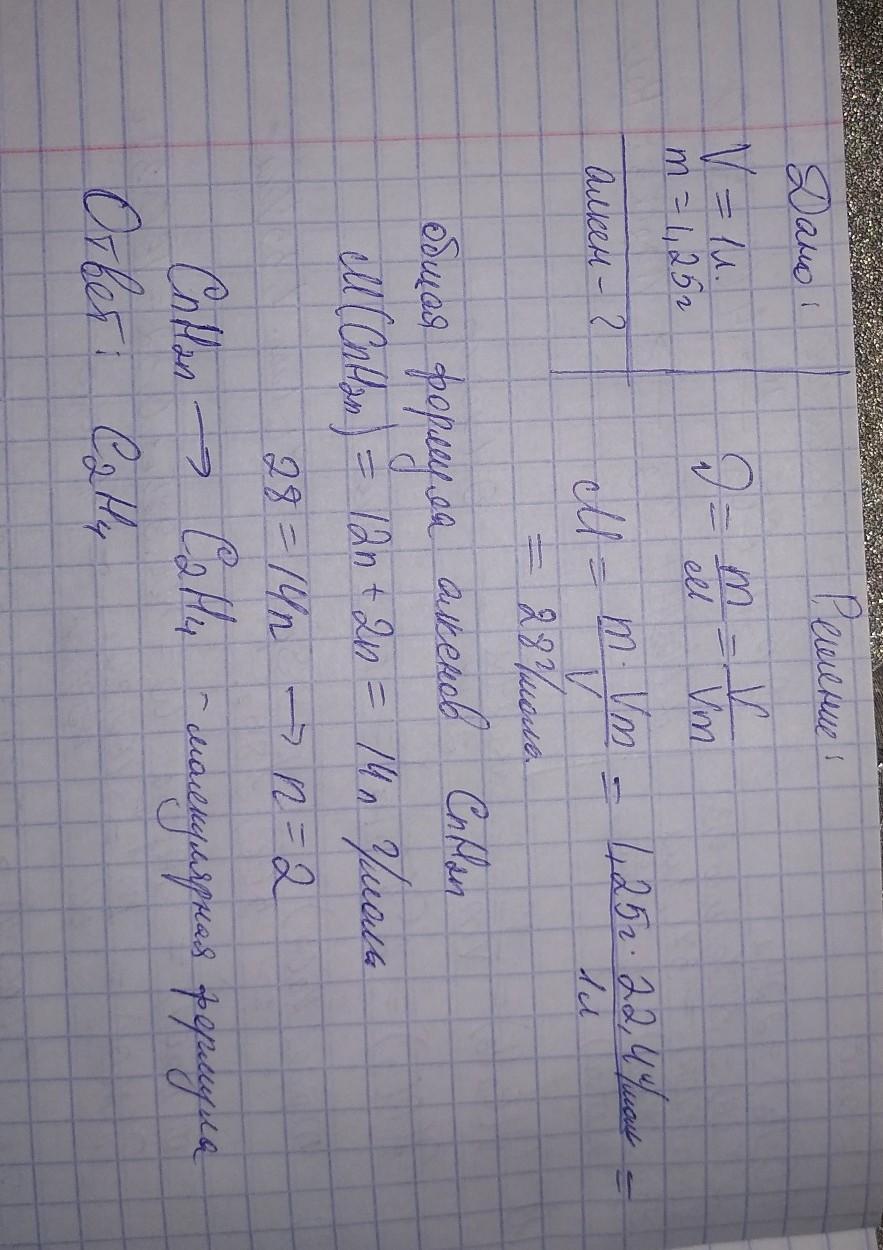 Дано:
V = 1л.
m = 1,25г
алкен - ?
Решение:
ν = m/M = V/Vm
M = m · Vm / V = 1,25г · 22,4 л/моль / 1л =
= 28 г/моль
общая формула алкенов CnH2n
M(CnH2n) = 12n + 2n = 14n г/моль
28 = 14n → n = 2
CnH2n → C2H4 - молекулярная формула
Ответ: C2H4